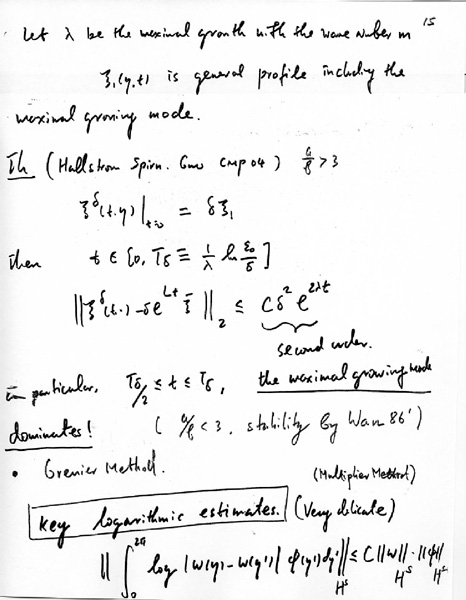 15
Let λ be the maximal growth with the wave number m
ξ₁(y,t) is general profile including the
maximal growing mode.
Th (Hallstrom Spirn. Guo CMP 04) a/b > 3
ξ^δ(t,y)|_{t=0} = δξ₁
then t ∈ [0, T_δ ≡ 1/λ ln ε₀/δ]
‖ξ^δ(t,·) - δe^{Lt} ξ‖₂ ≤ Cδ² e^{2λt}
second order.
In particular, T_δ/2 ≤ t ≤ T_δ, the maximal growing mode
dominates! ( a/b < 3. stability by Wan 86')
• Grenier Method.
(Multiplier Method)
Key logarithmic estimates. (Very delicate)
‖∫₀^{2π} log |w(y) - w(y')| φ(y') dy'‖_{H^s} ≤ C‖w‖_{H^s} · ‖φ‖_{H^s}